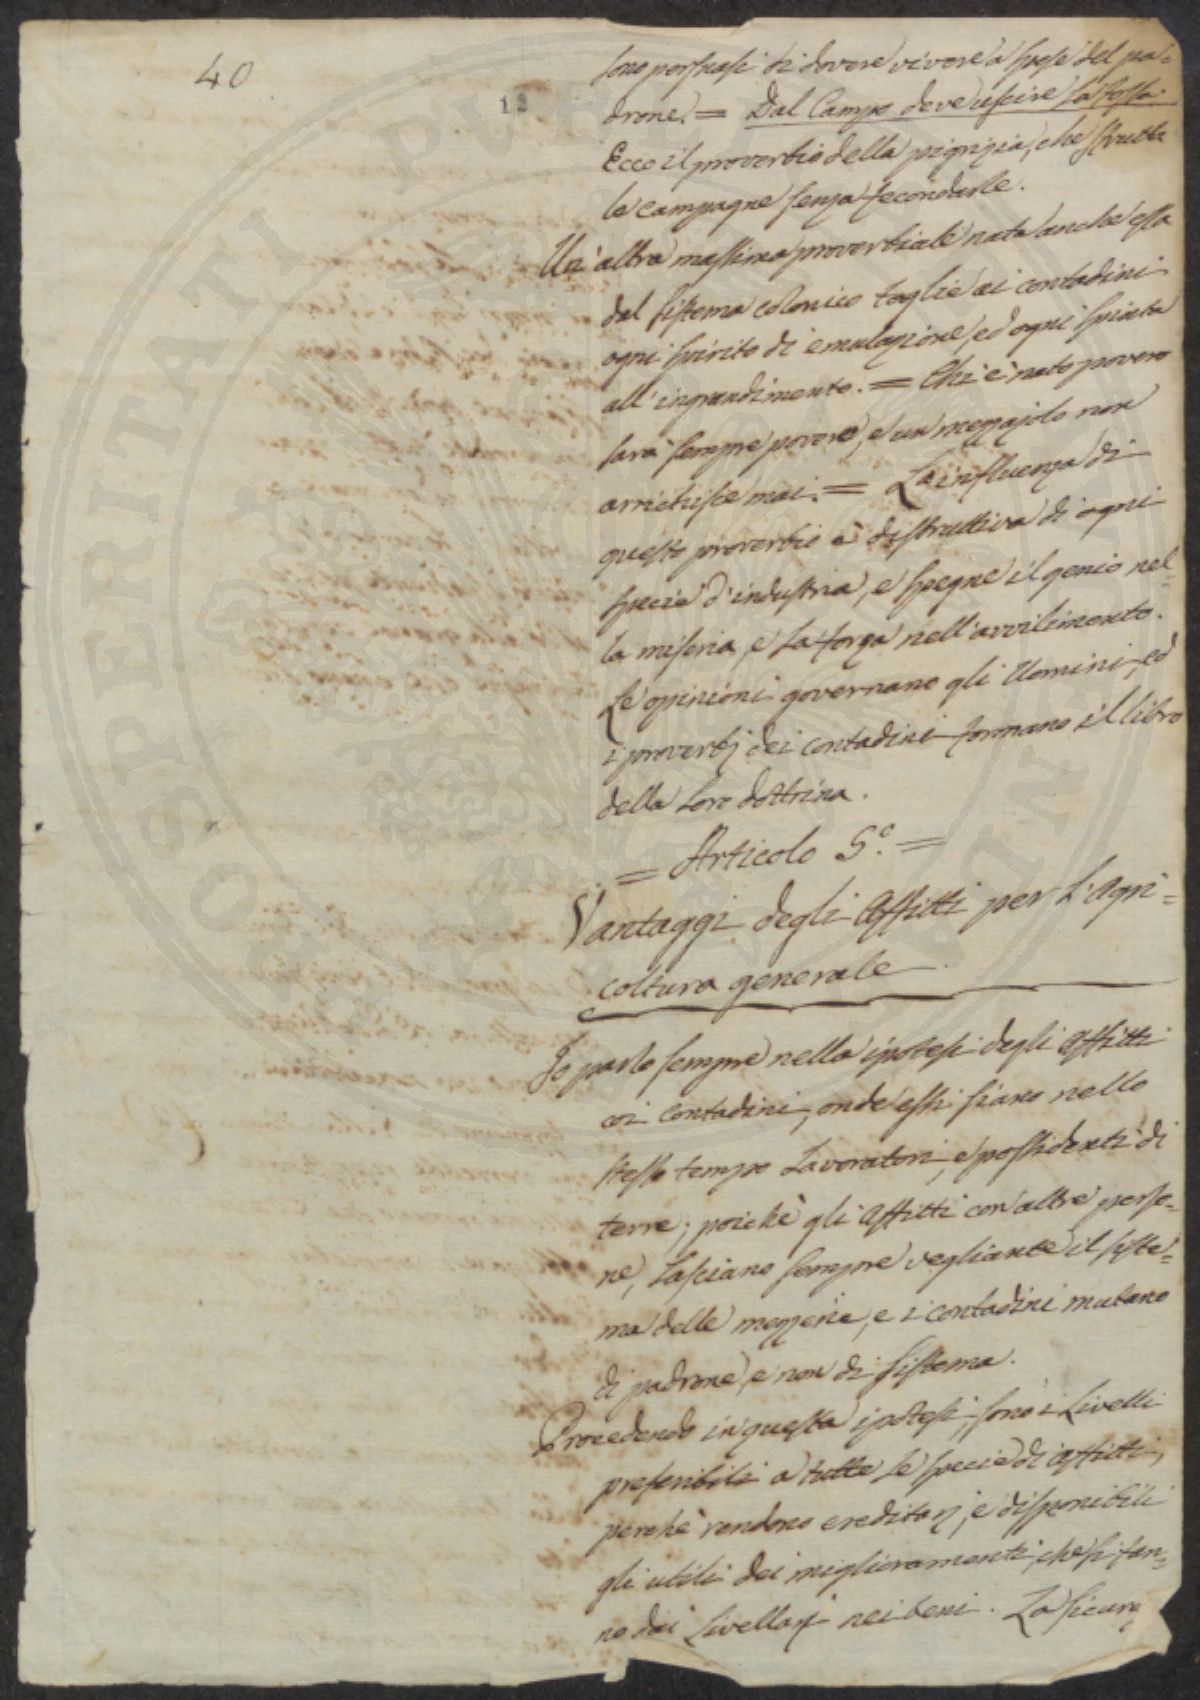 40
12
sono persuasi di dovere vivere a spese del pa-
drone. = Dal Campo deve uscire la fossa.
Ecco il proverbio della pigrizia, che sfrutta
le campagne senza fecondarle.
Un'altra massima proverbiale nata anche essa
dal sistema colonico toglie ai contadini
ogni spirito di emulazione, ed ogni spinta
all'ingrandimento. = Chi è nato povero
sarà sempre povero, e un mezzajolo non
arrichisce mai. = La influenza di
questo proverbio è distruttiva di ogni
specie d'industria, e spegne il genio nel-
la miseria, e la forza nell'avvilimento.
Le opinioni governano gli Uomini, ed
i proverbj dei contadini formano il libro
della loro dottrina.
= Articolo 5.º =
Vantaggi degli Affitti per l'Agri=
coltura generale
Io parlo sempre nella ipotesi degli affitti
coi contadini, onde essi siano nello
stesso tempo Lavoratori, e possidenti di
terre; poichè gli Affitti con altre perso-
ne, lasciano sempre vegliante il siste=
ma delle mezzerie, e i contadini mutano
di padrone, e non di sistema.
Procedendo in questa ipotesi, sono i Livelli
preferibili a tutte le specie di affitti,
perchè rendono ereditarj, e disponibili
gli utili dei miglioramenti, che si fan=
no dai Livellarj nei beni. La sicurez
PROSPERITATI PUBLICAE